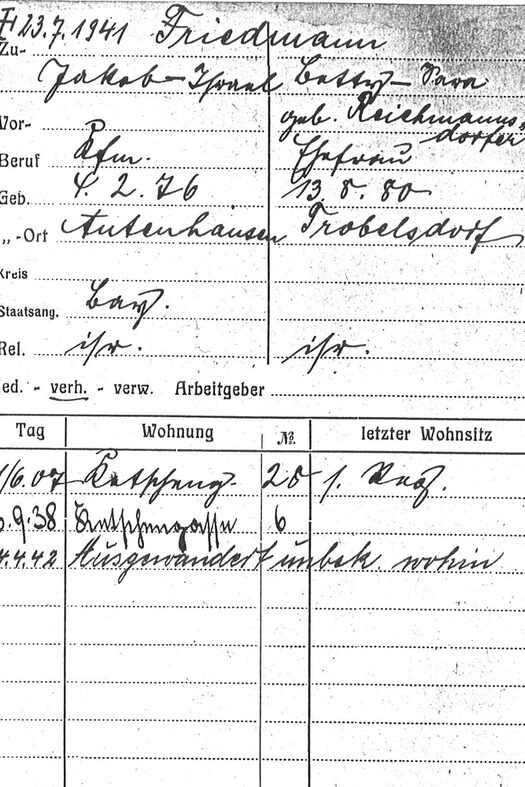 † 23.7.1941 Friedmann
Zu-
Jakob-Israel Betty-Sara
geb. Reichmanns-
Vor- dorfer
Beruf Kfm. Ehefrau
Geb. 4. 2. 76 13. 8. 80
„ -Ort Autenhausen Trabelsdorf
Kreis
Staatsang. bay.
Rel. isr. isr.
ed. - verh. - verw. Arbeitgeber
Tag Wohnung №. letzter Wohnsitz
1/6.07 Ketscheng. 20 s. Reg.
.9.38 Ketschengasse 6
4.4.42 Ausgewandert unbek. wohin